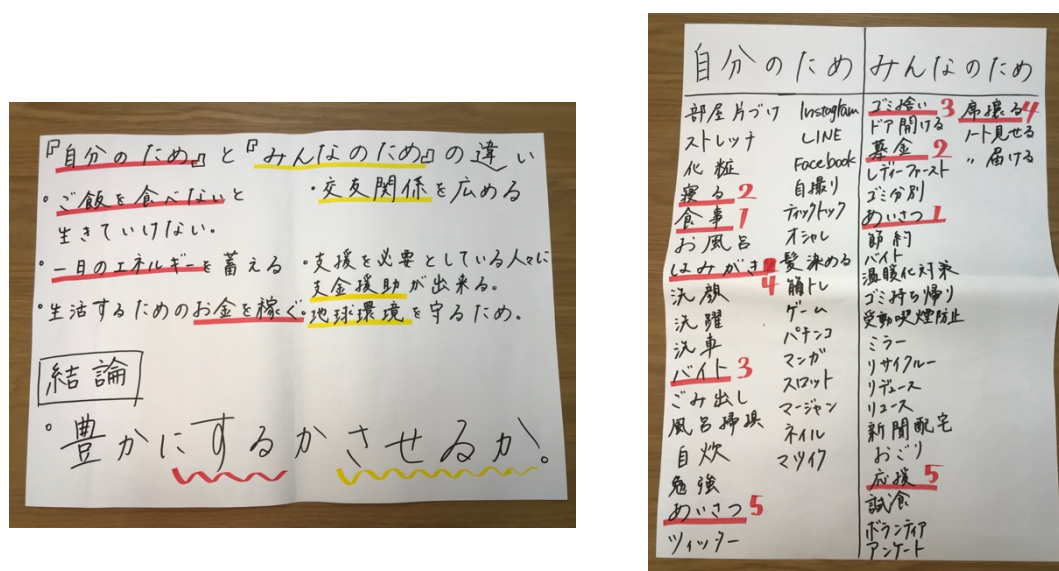 『自分のため』と『みんなのため』の違い
・ご飯を食べないと
生きていけない。
・一日のエネルギーを蓄える
・生活するためのお金を稼ぐ
・交友関係を広める
・支援を必要としている人々に
支金援助が出来る。
・地球環境を守るため。
結論
・豊かにするかさせるか。
自分のため
部屋片づけ
ストレッチ
化粧
寝る 2
食事 1
お風呂
はみがき 4
洗顔
洗濯
洗車
バイト 3
ごみ出し
風呂掃除
自炊
勉強
あいさつ 5
ツイッター
Instagram
LINE
Facebook
自撮り
ティックトック
オシャレ
髪染める
筋トレ
ゲーム
パチンコ
マンガ
スロット
マージャン
ネイル
マツイク
みんなのため
ゴミ拾い 3
ドア開ける
募金 2
レディーファースト
ゴミ分別
あいさつ 1
節約
バイト
温暖化対策
ゴミ持ち帰り
受動喫煙防止
ミラー
リサイクルー
リデュース
リユース
新聞配宅
おごり
応援 5
試食
ボランティア
アンケート
席譲る 4
ノート見せる
〃 届ける